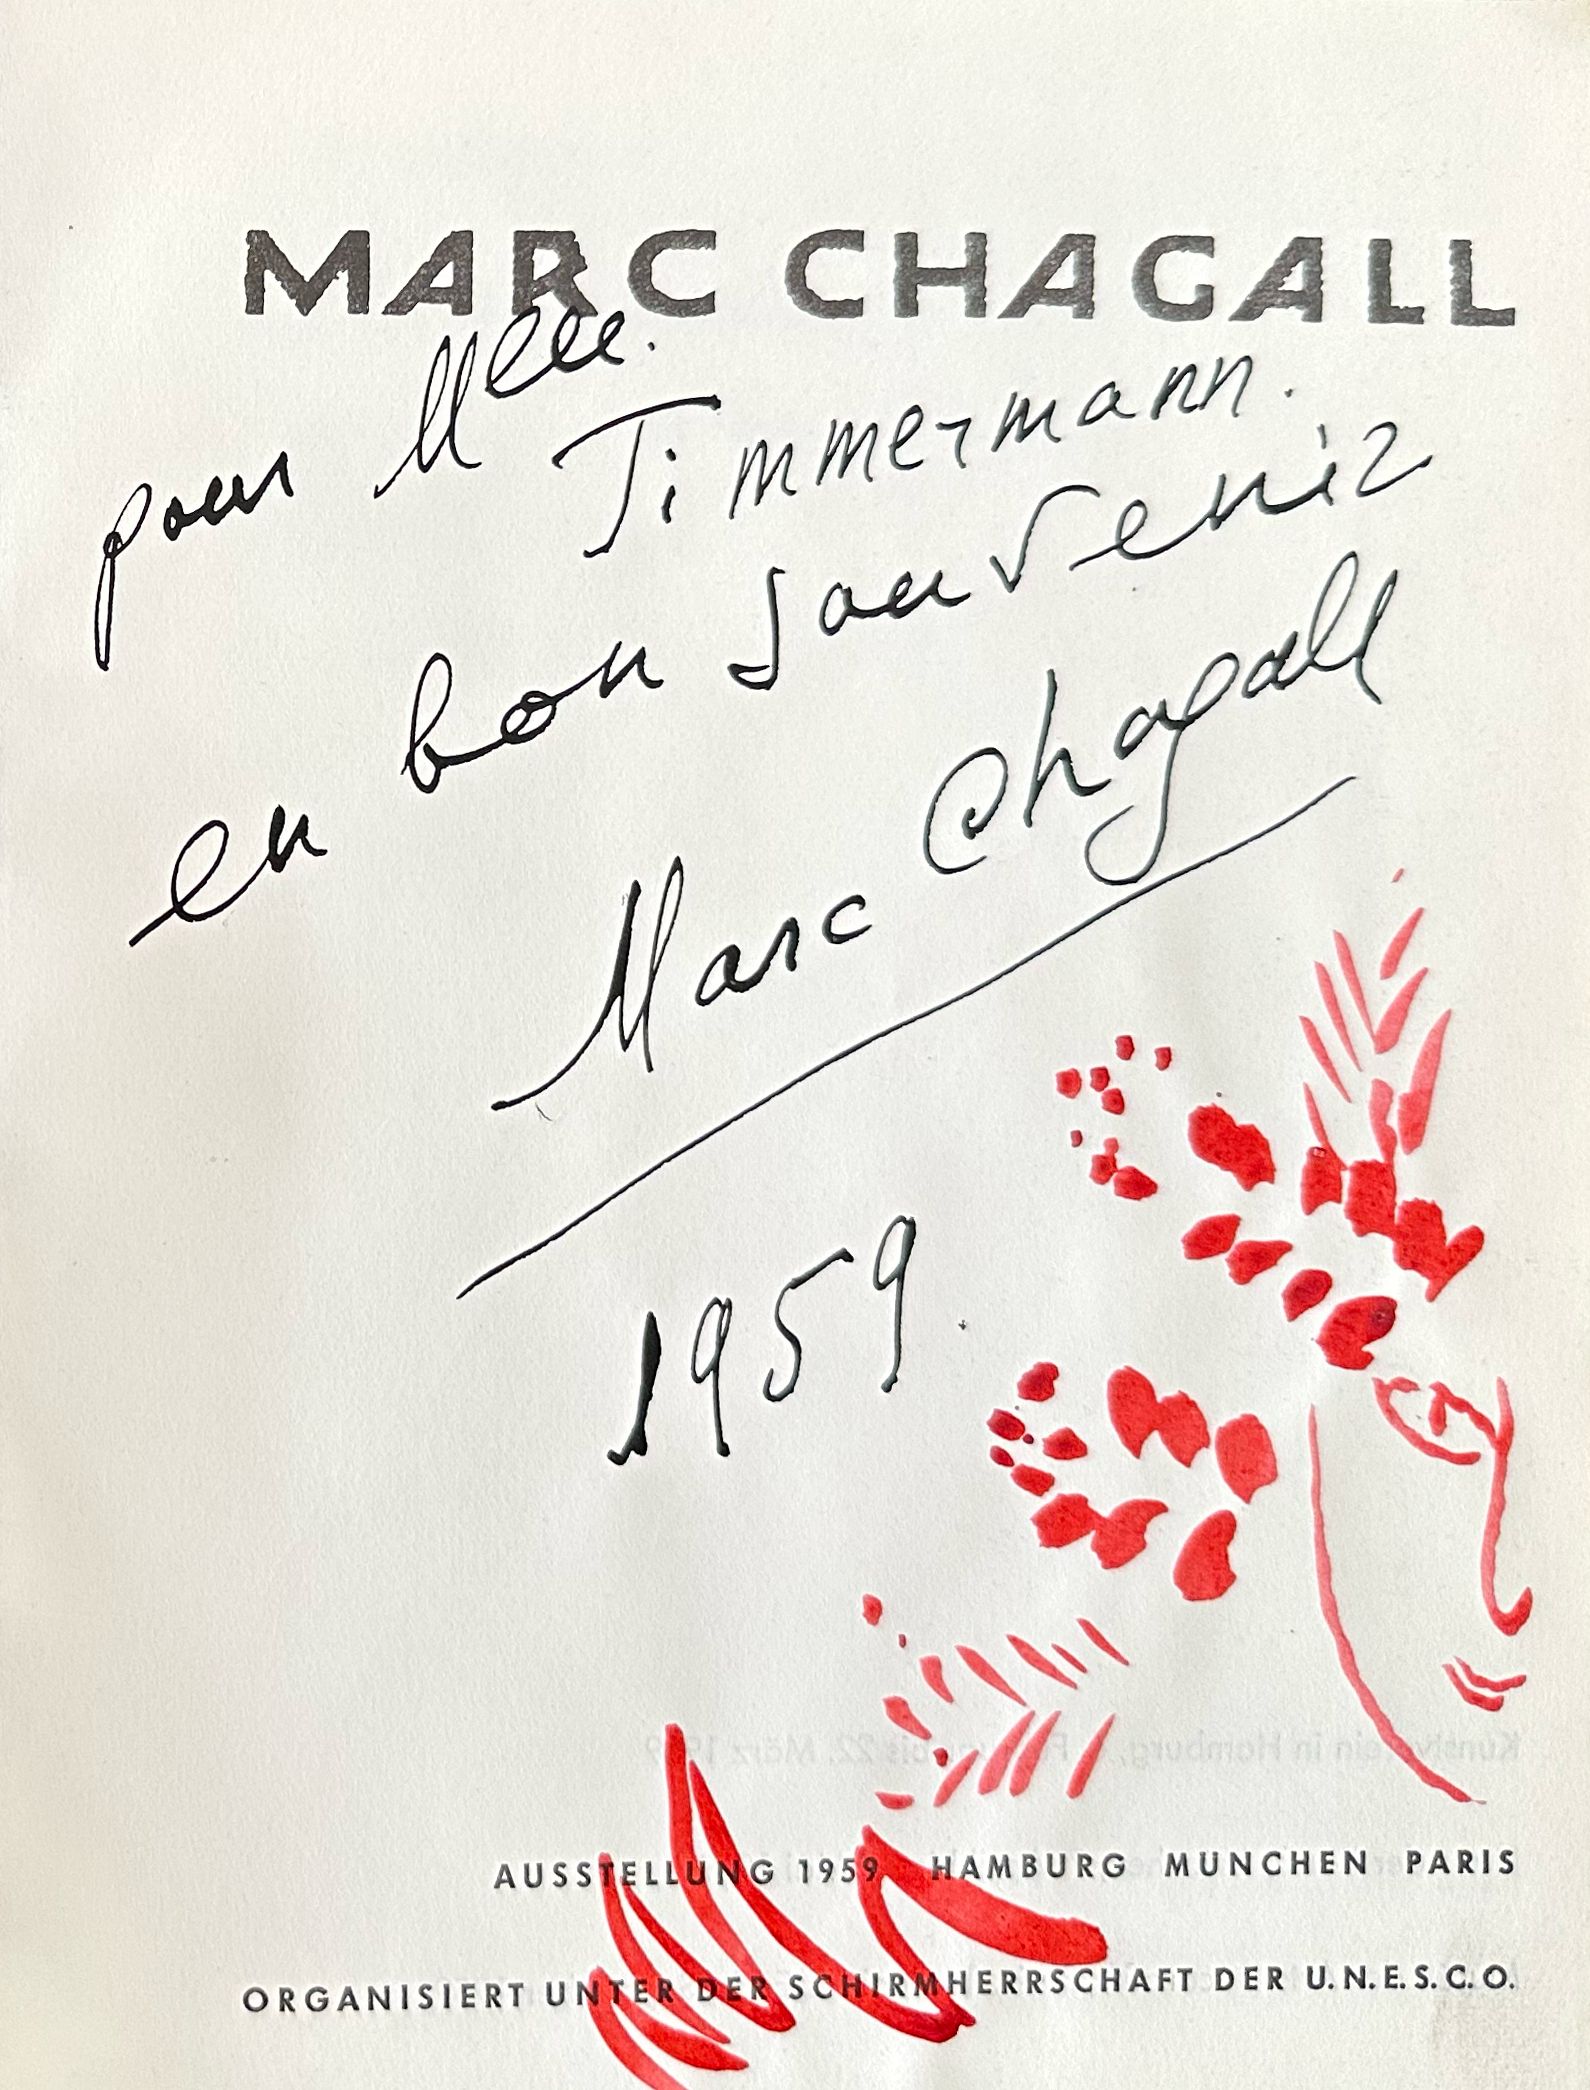 MARC CHAGALL
pour Mlle.
Timmermann.
en bon souvenir
Marc Chagall
1959.
AUSSTELLUNG 1959 HAMBURG MUNCHEN PARIS
ORGANISIERT UNTER DER SCHIRMHERRSCHAFT DER U.N.E.S.C.O.